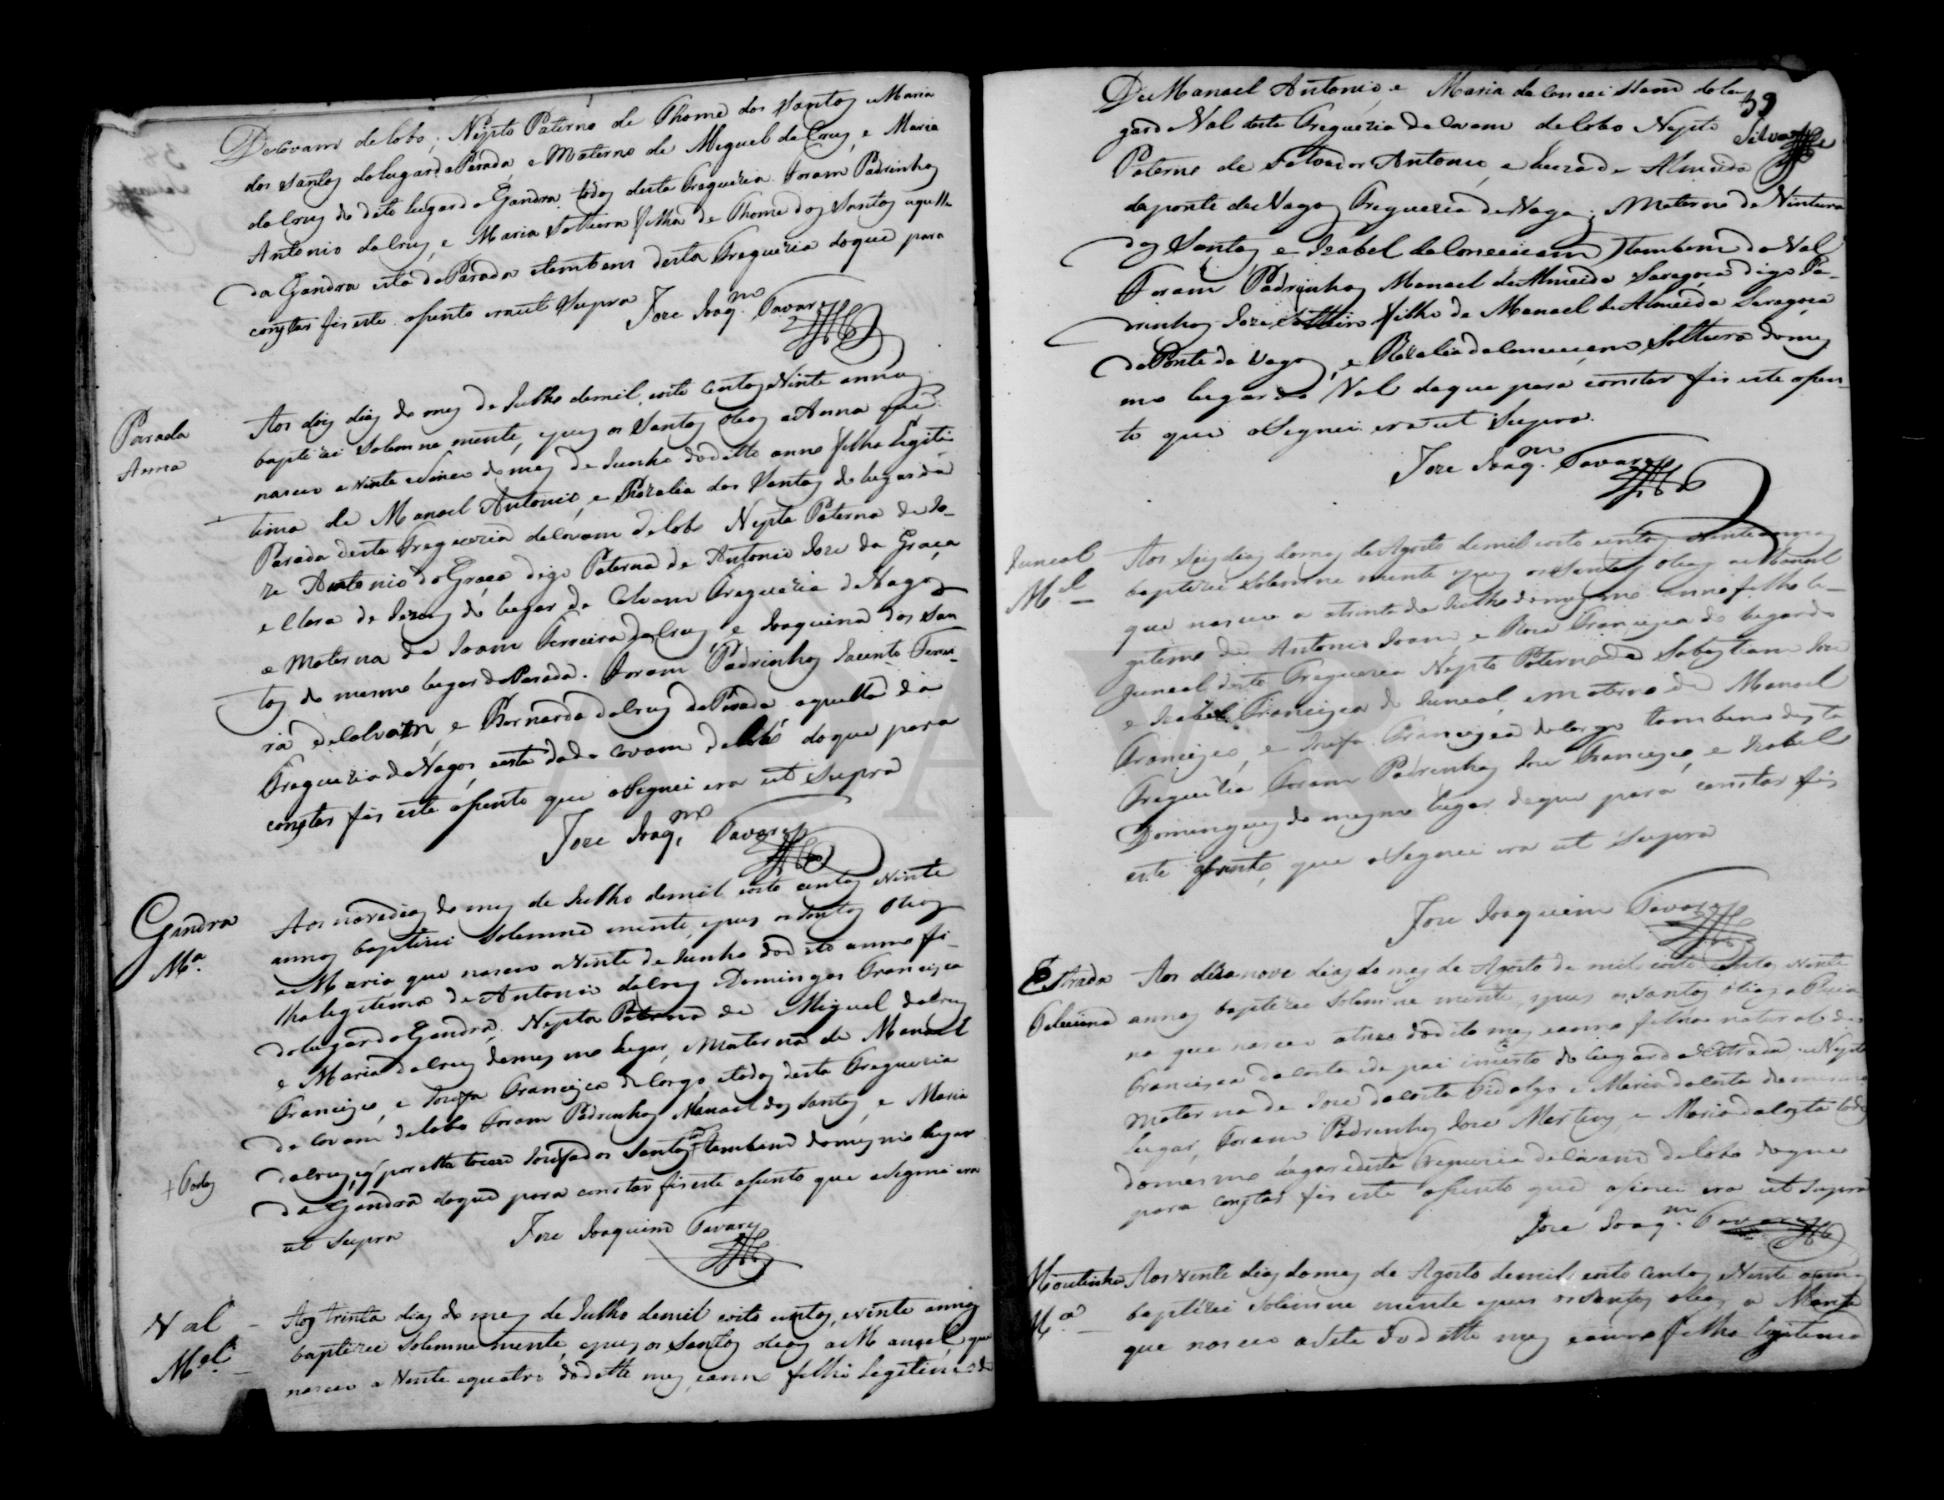 De Covam de lobo; Nepto Paterno de Thome dos Santos e Maria
dos Santos do lugar da Parada, e Materno de Miguel da Cruz, e Maria
da Cruz do dito lugar da Gandra todos desta Freguezia. Foram Padrinhos
Antonio da Cruz, e Maria Solteira filha de Thome dos Santos aquelle
da Gandra esta da Parada e tambem desta Freguezia do que para
constar fis este asento era ut Supra
Joze Joaqm. Tavares
Parada
Anna
Aos dois dias do mes de Julho de mil, oito centos, e Vinte annos
baptizei Solemne mente, e pus os Santos oleos a Anna que
nasceo a vinte e Sinco do mes de Junho do ditto anno filha Legi-
tima de Manoel Antonio, e Rozalia dos Santos do lugar da
Parada desta Freguezia de Covam de lobo Nepta Paterna de Jo-
ze Antonio da Graça digo Paterna de Antonio Joze da Graça
e Clara de Jezus do lugar de Calvam Freguezia de Vagos
e Materna de Joam Ferreira da Cruz, e Joaquina dos San-
tos do mesmo lugar da Parada. Foram Padrinhos Jacinto Ferrei-
ra, de Calvam, e Bernarda da Cruz da Parada aquelle da
Freguezia de Vagos, e esta da de Covam de lobo do que para
constar fis este asento que asegnei era ut Supra
Joze Joaqm. Tavares
Gandra
Ma.
Aos nove dias do mes de Julho de mil oito centos e Vinte
annos baptizei Solemne mente, e pus os Santos Oleos
a Maria que nasceo a Vinte de Junho do dito anno fi-
lha legitima de Antonio da Cruz e Domingas Francisca
do lugar da Gandra, Nepta Paterna de Miguel da Cruz
e Maria da Cruz do mesmo lugar, e Materna de Manoel
Francisco, e Josefa Francisca do Corgo, e todos desta Freguezia
de Covam de lobo Foram Padrinhos Manoel dos Santos, e Maria
da Cruz, por ella tocou Josefa dos Santos tambem do mesmo lugar
da Gandra do que para constar fis este asento que asegnei era
ut Supra
Joze Joaquim Tavares
Val
Mel.
Aos trinta dias do mes de Julho de mil oito centos, e vinte annos
baptizei Solemne mente, e pus os Santos oleos a Manoel que
nasceo a Vinte e quatro do ditto mes, e anno filho Legitimo de
59
Silva
De Manoel Antonio, e Maria da Conceissam do lu
gar do Val deste Freguezia de Covam de lobo Nepto
Paterno de Salvador Antonio, e Luiza de Almeida
da ponte de Vagos Freguezia de Vagos; e Materno de Ventura
dos Santos e Izabel da Conceicam tambem do Val
Foram Padrinhos Manoel de Almeida Saragoça digo Pa-
drinhos Joze Solteiro filho de Manoel de Almeida Saragoca
da Ponte de Vagos, e Rozalia da Conceiçam Solteira do mes
mo lugar do Val do que para constar fis este asen-
to que asegnei era ut Supra.
Joze Joaqm. Tavares
Juncal
Mel.
Aos Seis dias do mes de Agosto de mil oito centos e vinte annos
baptizei Solemne mente e pus os Santos oleos a Manoel
que nasceo a trinta de Julho do mesmo anno filho le-
gitimo de Antonio Joam, e Roza Francisca do lugar do
Juncal desta Freguezia Nepto Paterno de Sebastiam Joze
e Izabel Francisca do Juncal, e Materno de Manoel
Francisco, e Josefa Francisca do Corgo tambem desta
Freguezia Foram Padrinhos Joze Francisco, e Izabel
Domingues do mesmo lugar do que para constar fis
este asento, que asegnei era ut Supra
Joze Joaquim Tavares
Estrada
Aos dezanove dias do mes de Agosto de mil oito centos e vinte
annos baptizei Solemne mente, e pus os Santos oleos a
na que nasceo a tres do dito mes e anno filha natural de
Francisca da Costa e de pai incerto do lugar da Estrada e Nepta
Materna de Joze da Costa Fidalgo e Maria da Costa do mesmo
lugar, Foram Padrinhos Joze Martins, e Maria da Costa todos
do mesmo lugar e desta Freguezia de Covam de lobo do que
para constar fis este asento que asinei era ut Supra
Joze Joaqm. Tavares
Moutinho
Ma.
Aos Vinte dias do mes de Agosto de mil oito centos e Vinte annos
baptizei Solemne mente e pus os Santos oleos a Maria
que nasceo a Sete do ditto mes e anno filha legitima
ADAVR